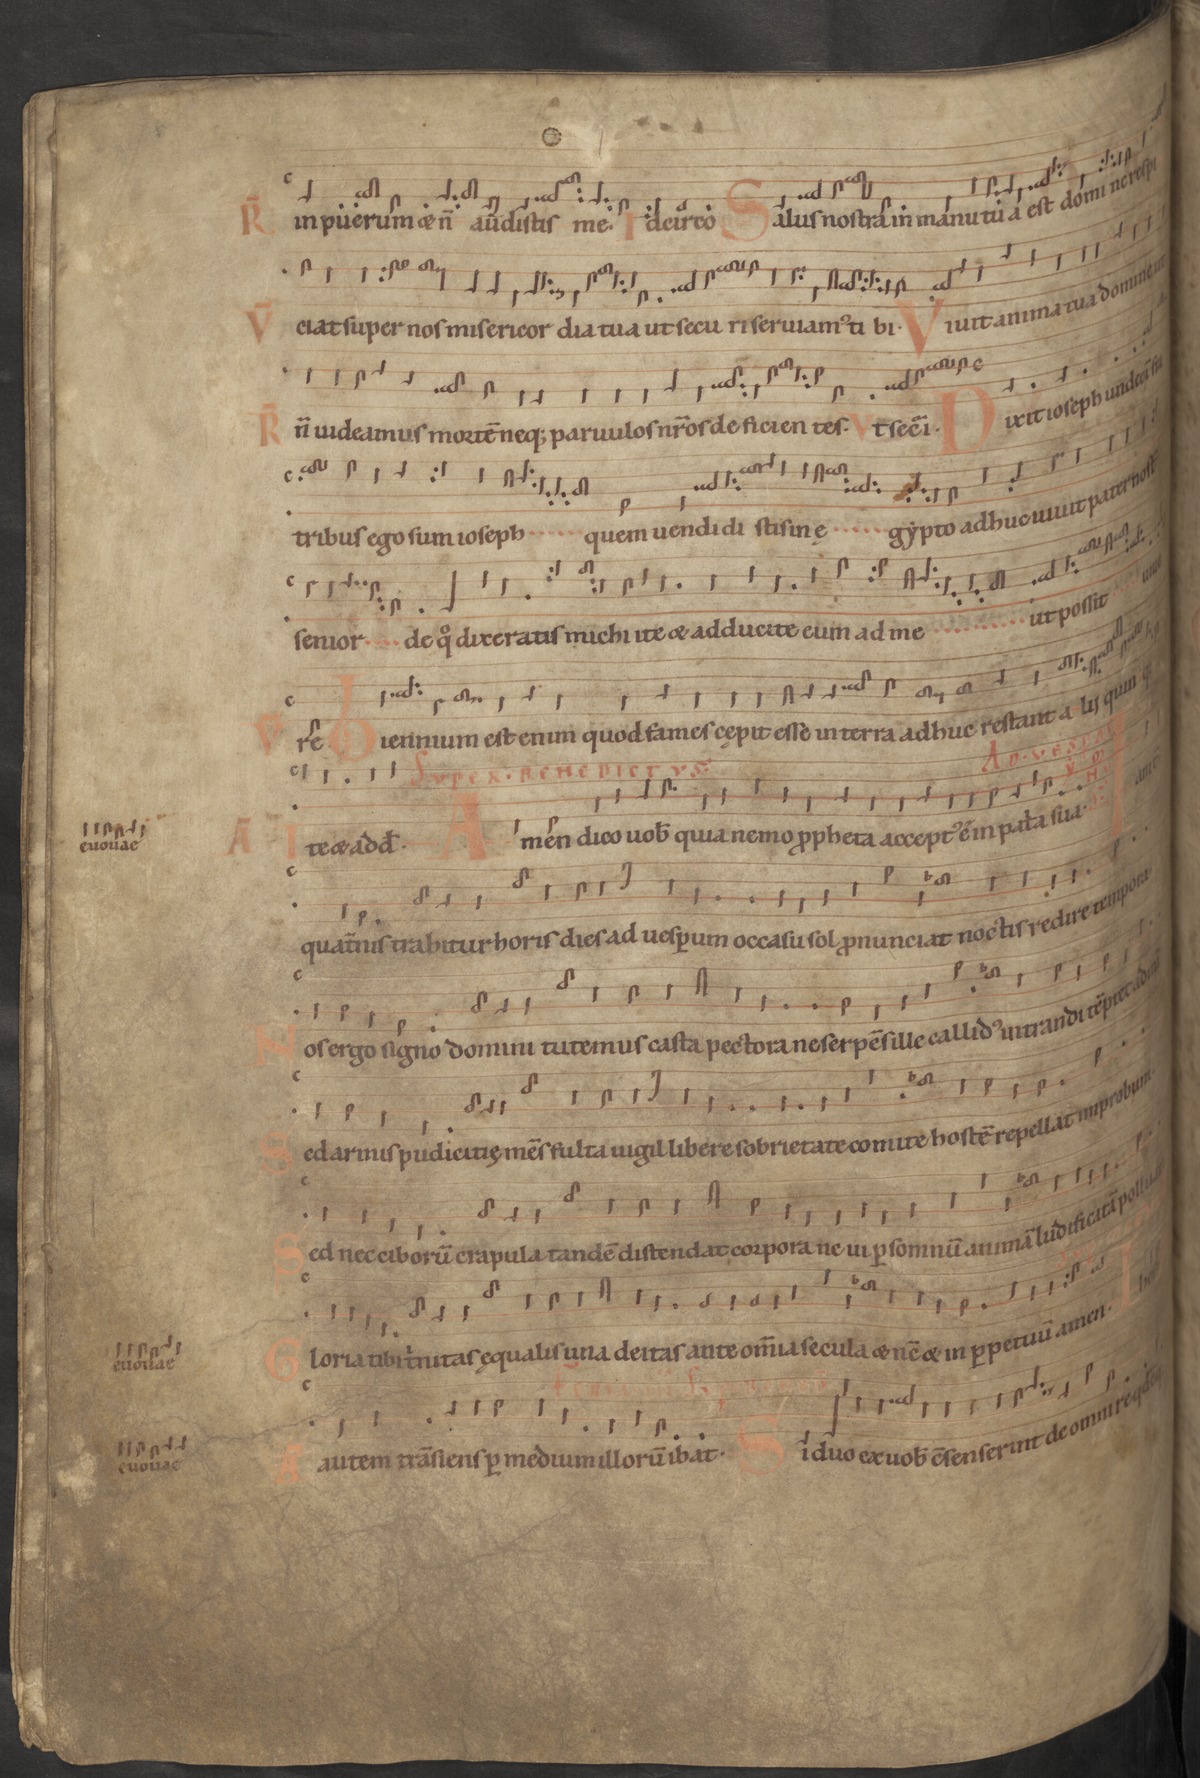 R̃ in puerum & ñ audistis me. Idcirco Salus nostra in manu tua est domine respi
V̄ ciat super nos misericordia tua ut securi seruiamꝰ tibi. Viuit anima tua domine
R̃ ñ uideamus mortē neq; paruulos nr̄os deficientes. Vt sec̄i. Dixit ioseph undeci
tribus ego sum ioseph quem uendidistis in ęgypto adhuc uiuit pater nost
senior de qͦ dixeratis michi ite & adducite eum ad me ut possit
V̄ re Biennium est enim quod fames cępit esse in terra adhuc restant alii
SVPER BENEDICTVS. AD VESPERAS
euouae A Ite & add. Amen dico uob̄ quia nemo ꝓpheta acceptꝰ ē in pat̄a sua.
quat̄nis trahitur horis dies ad uesꝑum occasu sol ꝓnunciat noctis redire tempora.
Nos ergo signo domini tutemus casta pectora ne serpēs ille callidꝰ intrandi
Sed armis pudicitię mēs fulta uigil libere sobrietate comite hostē repellat improbum.
Sed nec ciborū crapula tandē distendat corpora ne ui ꝑ somnū animā ludificatā
euouae Gloria tibi t̄nitas ęqualis una deitas ante om̄ia secula & nc̄ & in ꝑpetuū amen.
euouae A autem trāsiens ꝑ medium illorū ibat. Si duo ex uob̄ c̄senserint de omni re